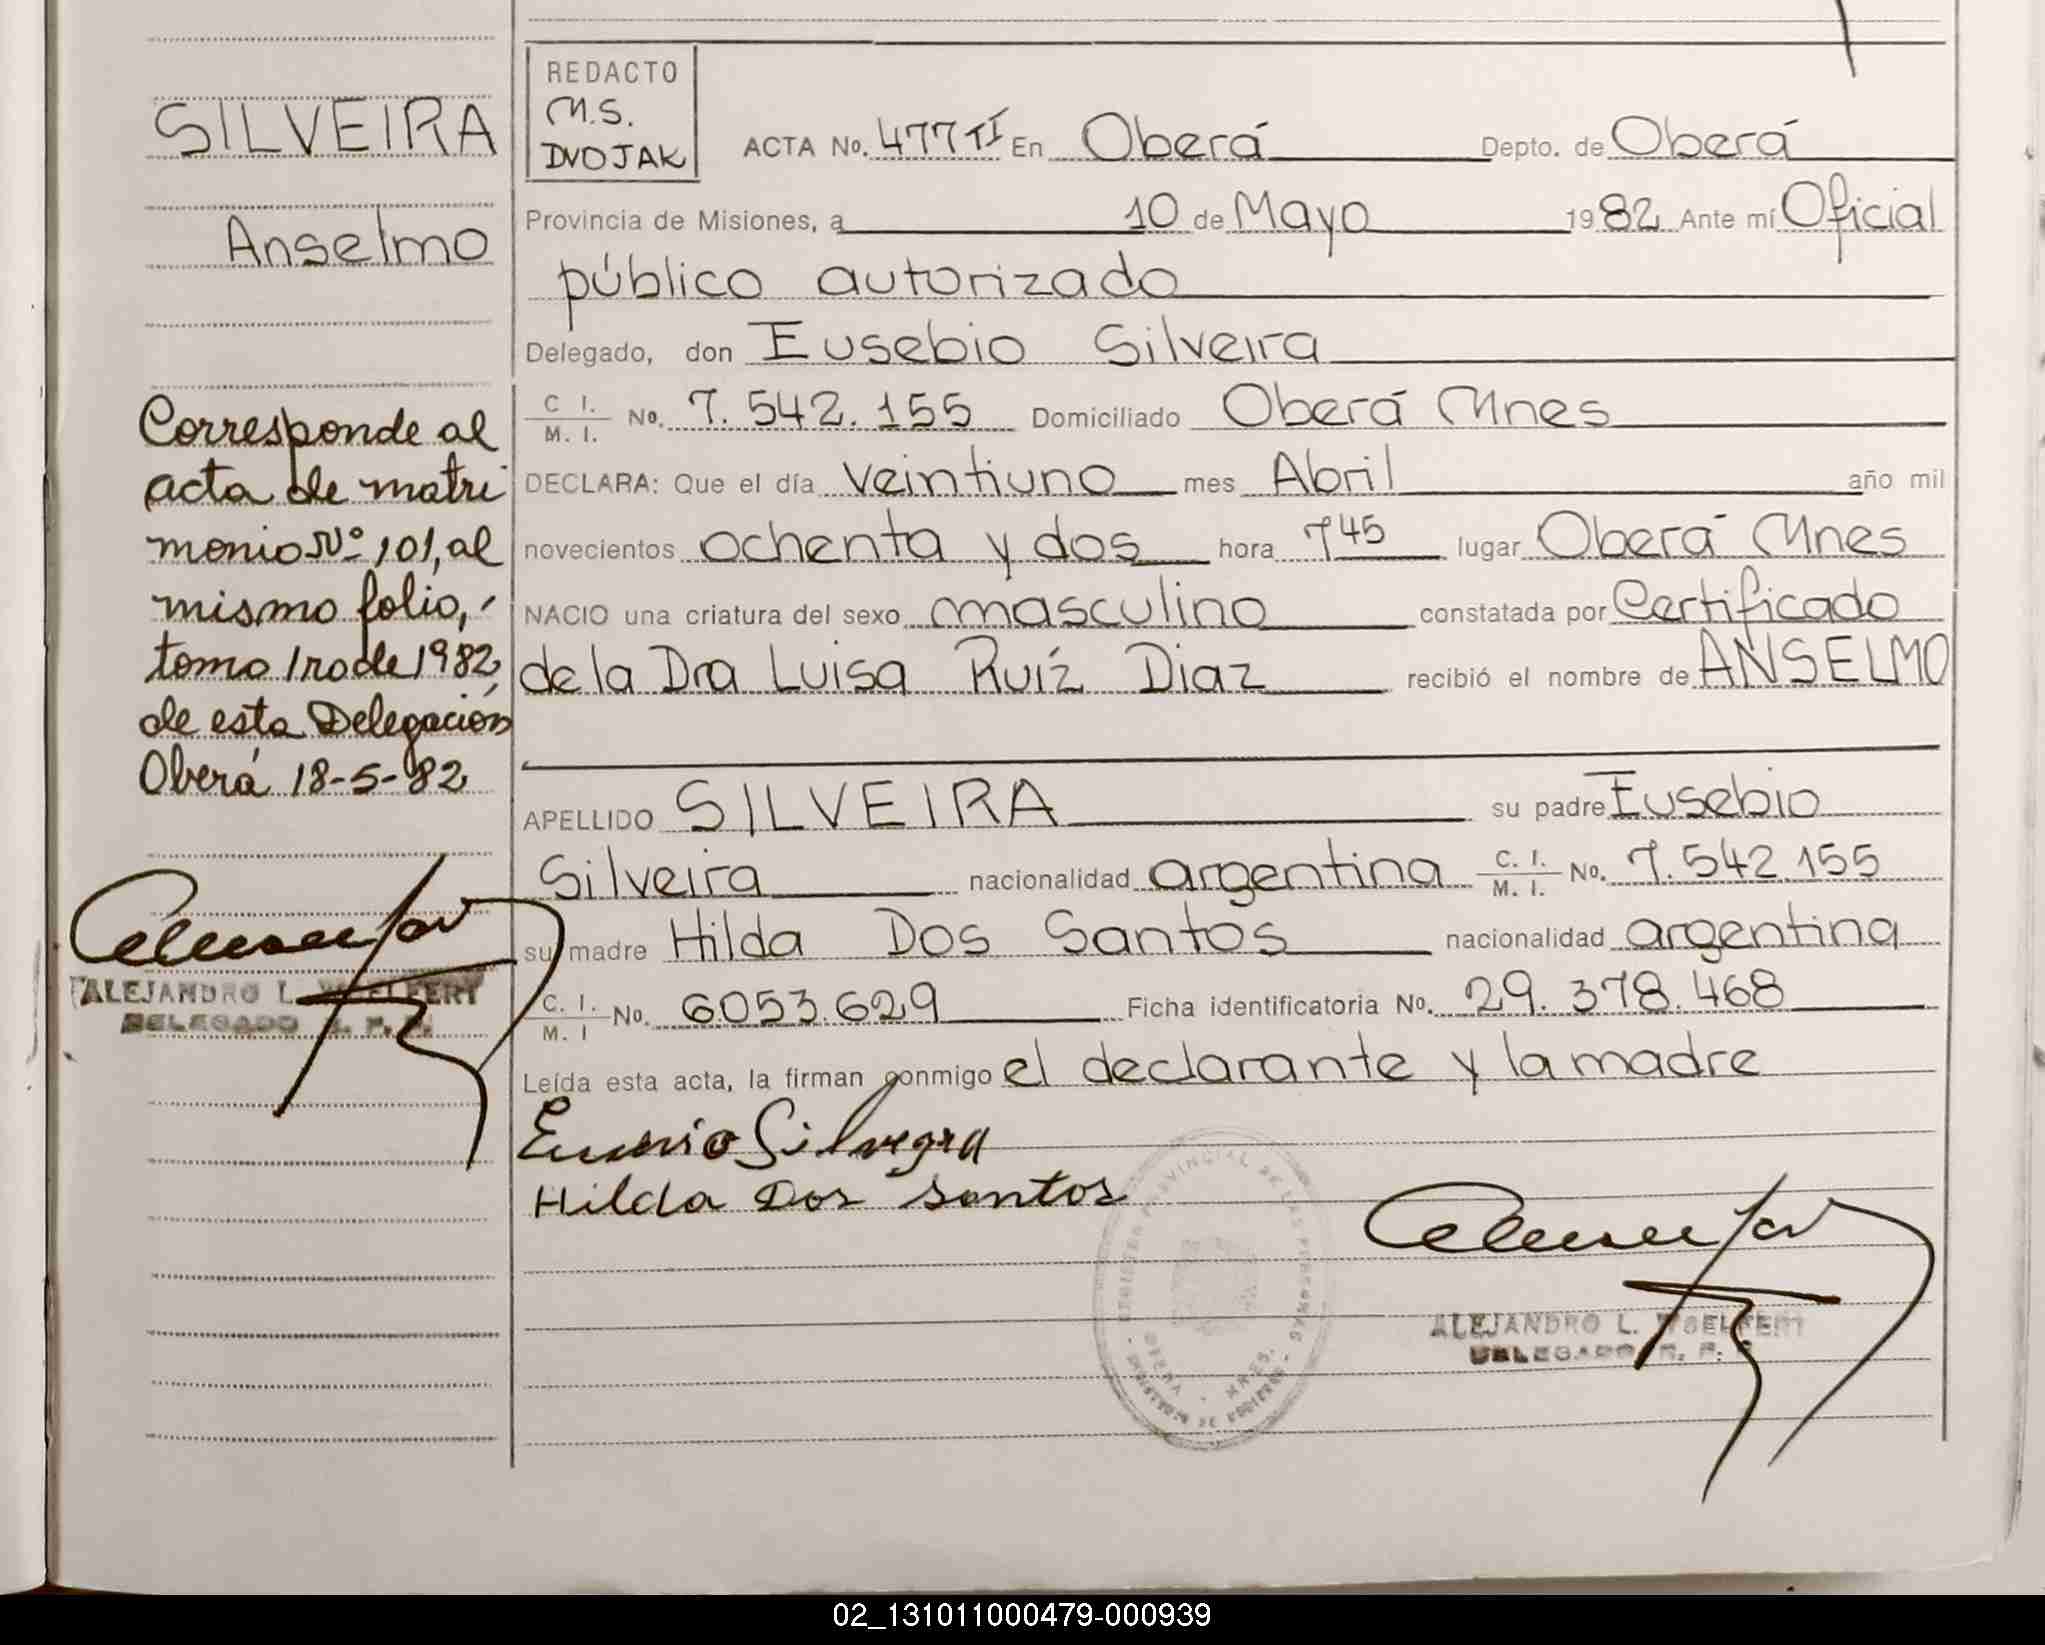 SILVEIRA
Anselmo
Corresponde al
acta de matri
monio Nº 101, al
mismo folio,
tomo 1ro de 1982,
de esta Delegación
Oberá 18-5-82
ALEJANDRO L. WOELFERT
DELEGADO R. P. P.
REDACTO
M.S.
DVOJAK
ACTA No. 477 TI En Oberá Depto. de Oberá
Provincia de Misiones, a 10 de Mayo 1982 Ante mí Oficial
público autorizado
Delegado, don Eusebio Silveira
C I. / M. I. No. 7.542.155 Domiciliado Oberá Mnes
DECLARA: Que el día veintiuno mes Abril año mil
novecientos ochenta y dos hora 7 45 lugar Oberá Mnes
NACIO una criatura del sexo masculino constatada por Certificado
de la Dra Luisa Ruíz Diaz recibió el nombre de ANSELMO
APELLIDO SILVEIRA su padre Eusebio
Silveira nacionalidad argentina C. I. / M. I. No. 7.542.155
su madre Hilda Dos Santos nacionalidad argentina
C. I. / M. I No. 6053.629 Ficha identificatoria No. 29.378.468
Leída esta acta, la firman conmigo el declarante y la madre
Hilda Dos Santos
ALEJANDRO L. WOELFERT
DELEGADO R. P. P.
02_131011000479-000939